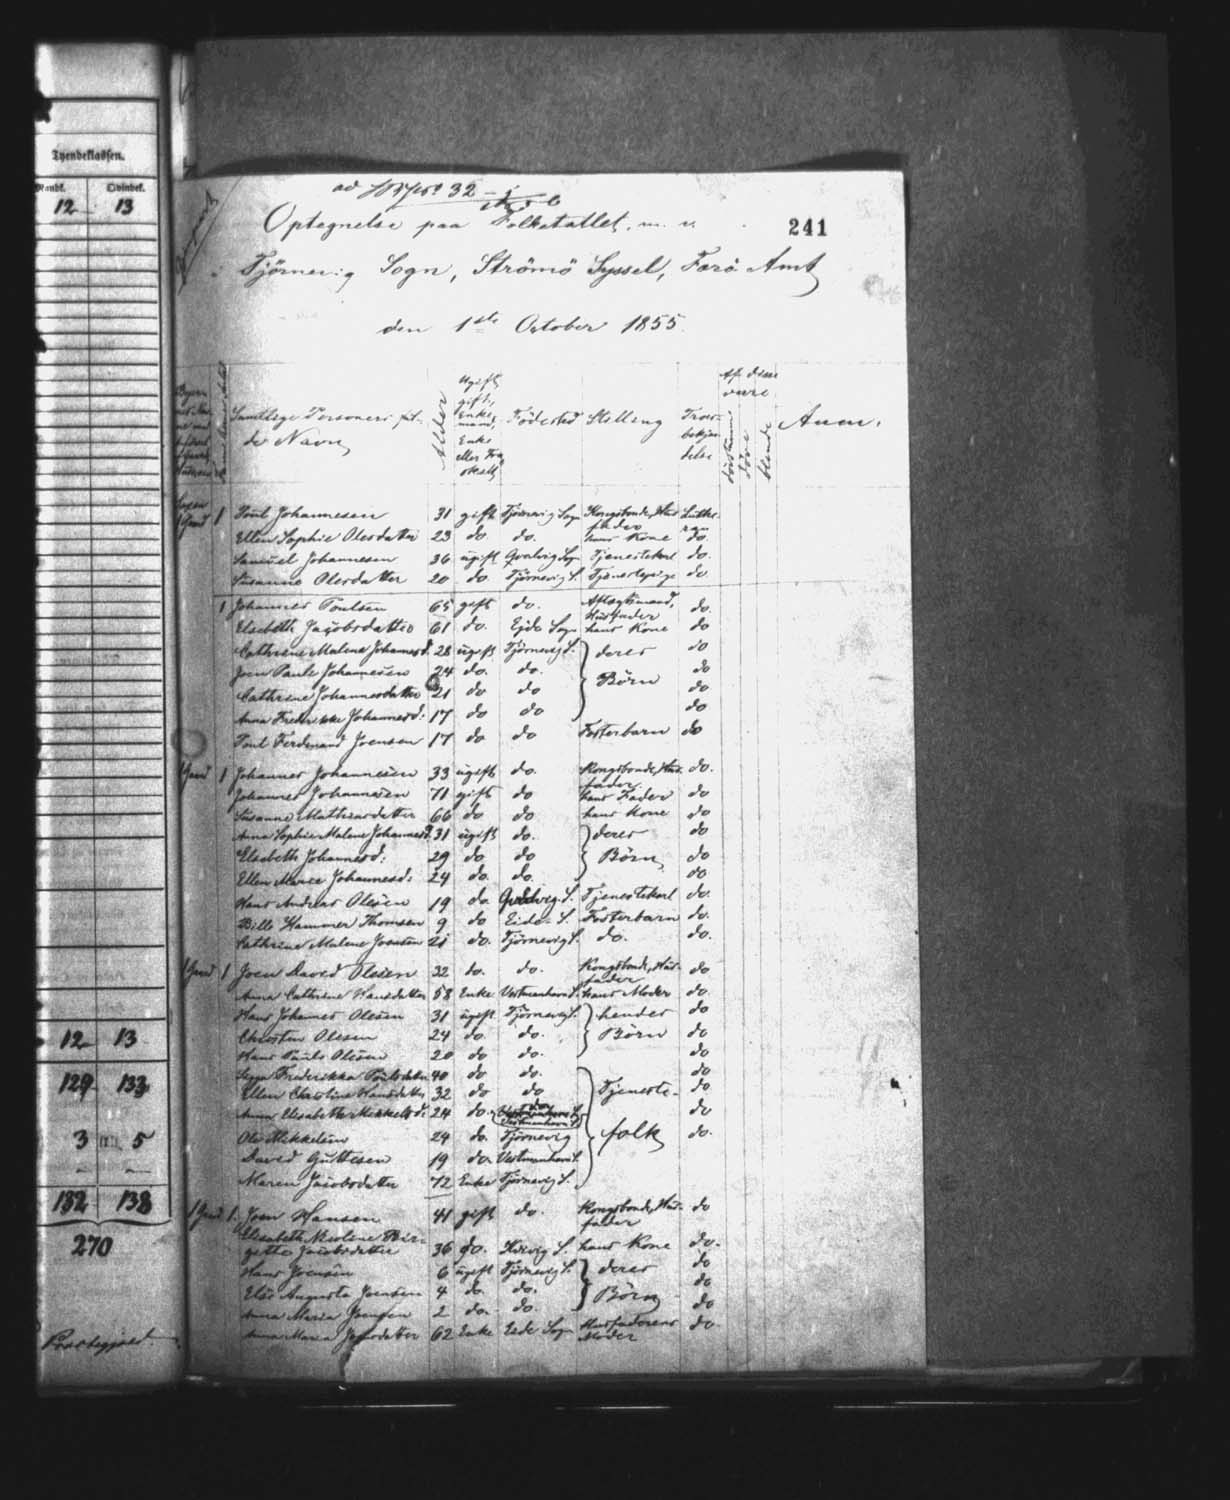 Tyendeklassen.
Mandk. Qvindek.
12 13
12 13
129 133
3 5
132 138
270
Præstegjæld.
241
Optegnelse paa Folketallet, m. v.
Tjörnevig Sogn, Strömö Syssel, Færö Amt
den 1ste October 1855.
Samtlige Personers fulde Navn
Alder
Ugift, gift, Enkemand, Enke eller Fraskilt
Födested
Stilling
Troesbekjendelse
Af disse vare
döve
blinde
Anm.
1 Gaard 1 Poul Johannesen 31 gift Tjörnevig Sogn Kongsbonde, Husfader Luthersan
Ellen Sophie Olesdatter 23 do. do. hans Kone do.
Samuel Johannesen 36 ugift Qvalvig Sogn Tjenestekarl do.
Susanne Olesdatter 20 do Tjörnevig S. Tjenestepige do
1 Johannes Poulsen 65 gift do. Aftægtsmand, Husfader do.
Elsebeth Jacobsdatter 61 do. Ejde Sogn hans Kone do
Cathrine Malene Johannesd. 28 ugift Tjörnevig S. deres do
Joen Paule Johannesen 24 do. do. Börn do
Cathrine Johannesdatter 21 do do do
Anna Frederikke Johannesd: 17 do do do
Poul Ferdinand Joensen 17 do do Fosterbarn do
1 Gaard 1 Johannes Johannesen 33 ugift do. Kongsbonde, Husfader do.
Johannes Johannesen 71 gift do hans Fader do
Susanne Mathiasdatter 66 do do hans Kone do
Anna Sophie Malene Johannesd. 31 ugift do. deres do
Elsebeth Johannesd: 29 do do Börn do
Ellen Marie Johannesd: 24 do. do. do
Hans Andreas Olesen 19 do. Qvalvig S. Tjenestekarl do.
Bille Hammer Thomsen 9 do Eide S. Fosterbarn do.
Cathrine Malene Joensen 21 do. Tjörnevig S. do. do.
1 Gaard 1 Joen David Olesen 32 do. do. Kongsbonde, Husfader do
Anna Cathrine Hansdatter 58 Enke Vestmanhavn S. hans Moder do
Hans Johannes Olesen 31 ugift Tjörnevig S. hendes do
Christen Olesen 24 do do. Börn do
Hans Paule Olesen 20 do do. do
Frederikka Poulsdatter 40 do do. do
Ellen Christine Hansdatter 32 do do Tjeneste- do
Anna Elisabeth Mikkelsd: 24 do. Vestmanhavn S. do
Ole Mikkelsen 24 do. Tjörnevig folk do.
David Guttesen 19 do. Vestmanhavn S.
Maren Jacobsdatter 72 Enke Tjörnevig S.
1 Gaard 1. Joen Hansen 41 gift do. Kongsbonde, Husfader do
Elisabeth Nicoline Birgette Jacobsdatter 36 do. Hvivig S. hans Kone do.
Hans Joensen 6 ugift Tjörnevig S. deres do
Else Augusta Joensen 4 do. do. Börn do
Anna Maria Joensen 2 do. do. do
Anna Maria 62 Enke Eide Sogn Husfaderens Moder do.